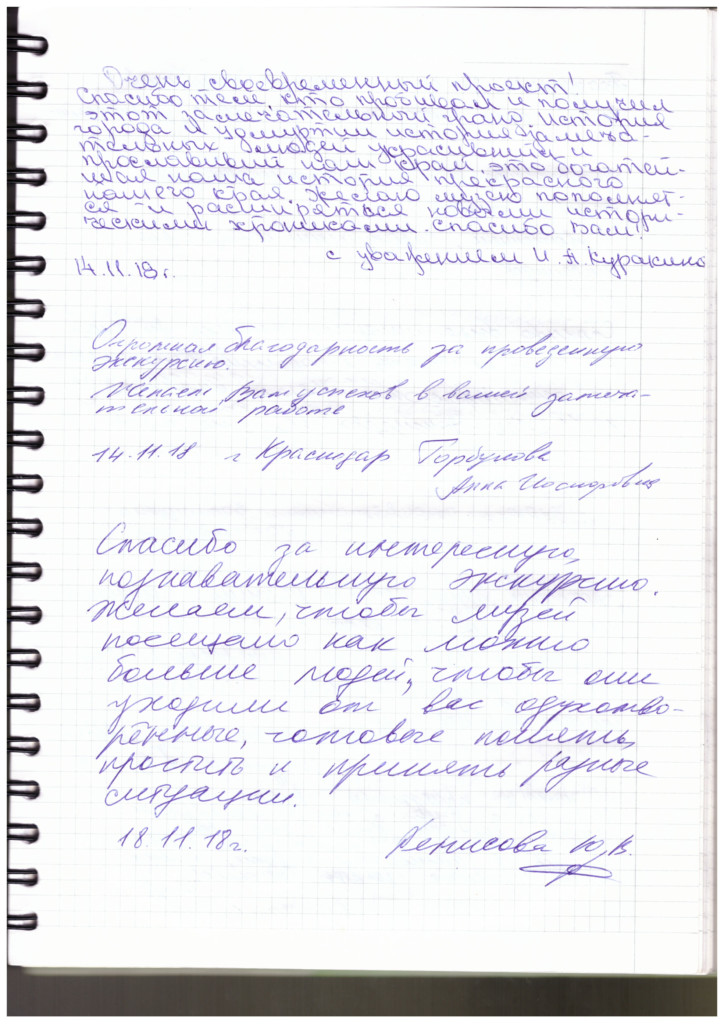 Очень своевременный проект!
Спасибо тем, кто пробивал и получил
этот замечательный грант. История
города и Удмуртии история замеча-
тельных людей украсивших и
прославивший наш край. это богатей-
шая наша история прекрасного
нашего края. Желаю музею пополнят-
ся и расширяться новыми истори-
ческими хрониками. спасибо вам!
с уважением И.А. Куракина
14.11.18г.
Огромная благодарность за проведенную
экскурсию.
Желаем Вам успехов в вашей замеча-
тельной работе
14.11.18 г Краснодар Горбунова
Анна
Спасибо за интересную,
познавательную экскурсию.
Желаем, чтобы музей
посещало как можно
больше людей, чтобы они
уходили от вас одухотво-
рённые, готовые понять,
простить и принять разные
ситуации.
18.11.18г. Денисова Ю.В.